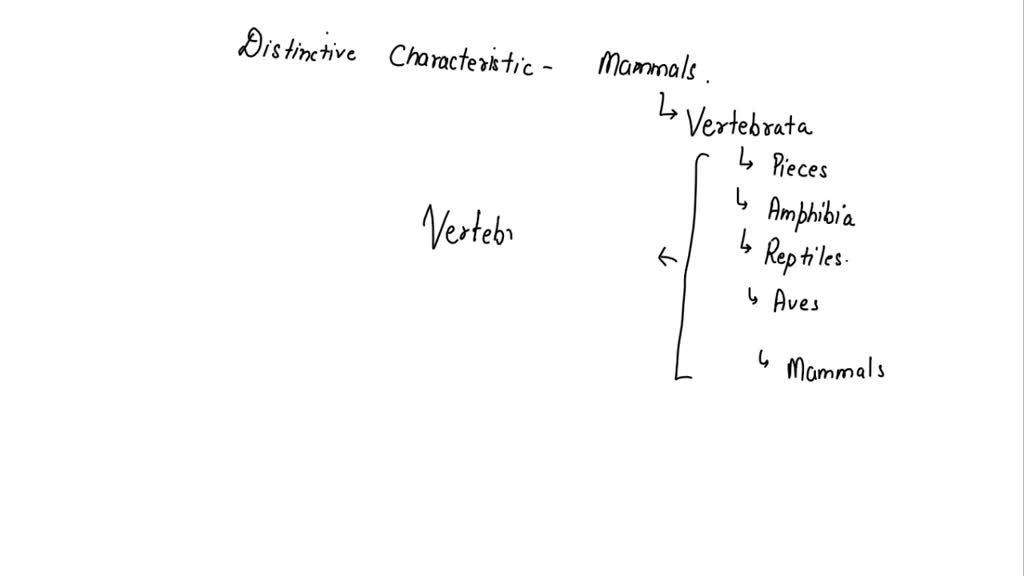 Distinctive Characteristic - Mammals.
↳ Vertebrata
↳ Pieces
↳ Amphibia
Vertebr
↳ Reptiles.
↳ Aves
↳ Mammals